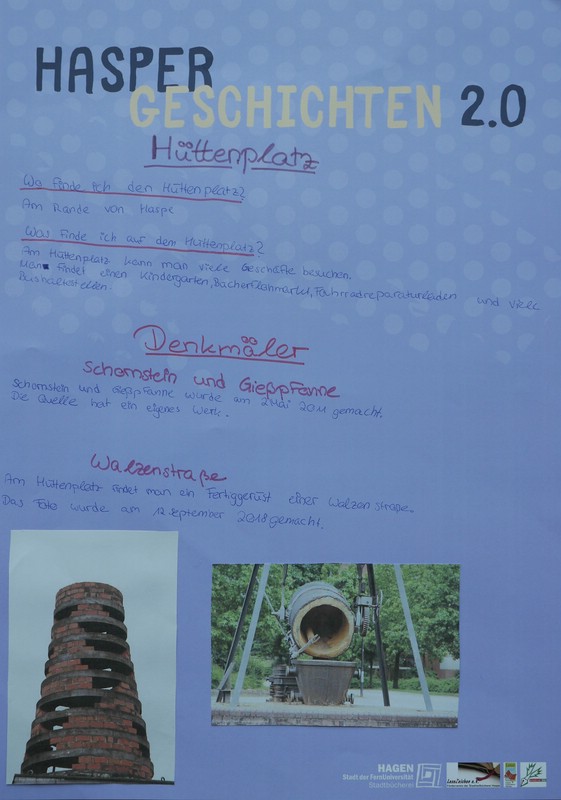 HASPER
GESCHICHTEN 2.0
Hüttenplatz
Wo finde ich den Hüttenplatz?
Am Rande von Haspe
Was finde ich auf dem Hüttenplatz?
Am Hüttenplatz kann man viele Geschäfte besuchen.
Man findet einen Kindergarten, Bücherflohmarkt, Fahrradreparaturladen und viele
Bushaltestellen.
Denkmäler
Schornstein und Gießpfanne
Schornstein und Gießpfanne wurde am 2 Mai 2011 gemacht.
Die Quelle hat ein eigenes Werk.
Walzenstraße
Am Hüttenplatz findet man ein Fertiggerüst einer Walzenstraße.
Das Foto wurde am 12 september 2018 gemacht.
HAGEN
Stadt der FernUniversität
Stadtbücherei